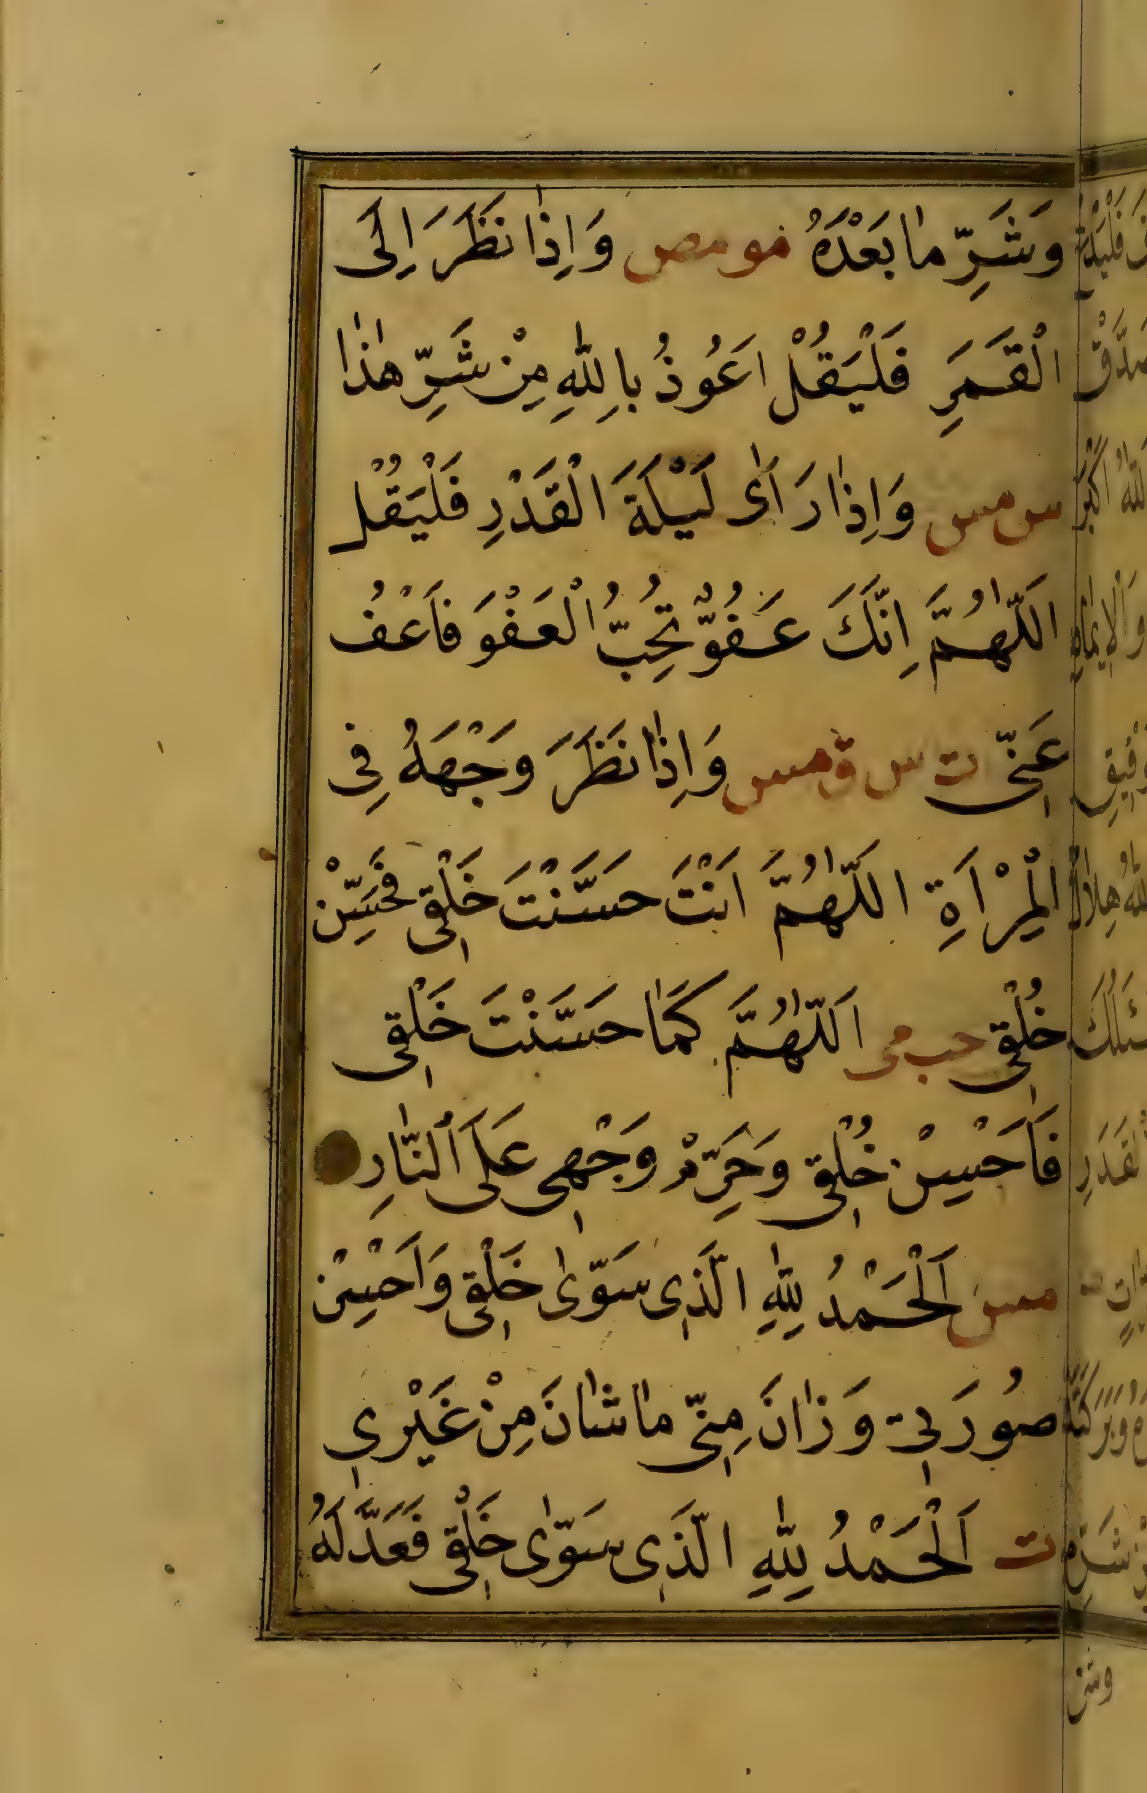 وَشَرِّ مٰا بَعْدَهُ مو مص وَاِذٰا نَظَرَ اِلَى
الْقَمَرِ فَلْيَقُلْ اَعُوذُ بِاللّٰهِ مِنْ شَرِّ هٰذٰا
س مس وَاِذٰا رَاَى لَيْلَةَ الْقَدْرِ فَلْيَقُلْ
اَللّٰهُمَّ اِنَّكَ عَفُوٌّ تُحِبُّ الْعَفْوَ فَاعْفُ
عَنِّي ت س ق مس وَاِذٰا نَظَرَ وَجْهَهُ فِي
الْمِرْاَةِ اللّٰهُمَّ اَنْتَ حَسَّنْتَ خَلْقِي فَحَسِّنْ
خُلْقِي حب مى اَللّٰهُمَّ كَمٰا حَسَّنْتَ خَلْقِي
فَاَحْسِنْ خُلْقِي وَحَرِّمْ وَجْهِي عَلَى النّٰارِ
مس اَلْحَمْدُ لِلّٰهِ الَّذِي سَوّٰى خَلْقِي وَاَحْسَنَ
صُورَتِي وَزٰانَ مِنِّي مٰا شٰانَ مِنْ غَيْرِي
ت اَلْحَمْدُ لِلّٰهِ الَّذِي سَوّٰى خَلْقِي فَعَدَّلَهُ